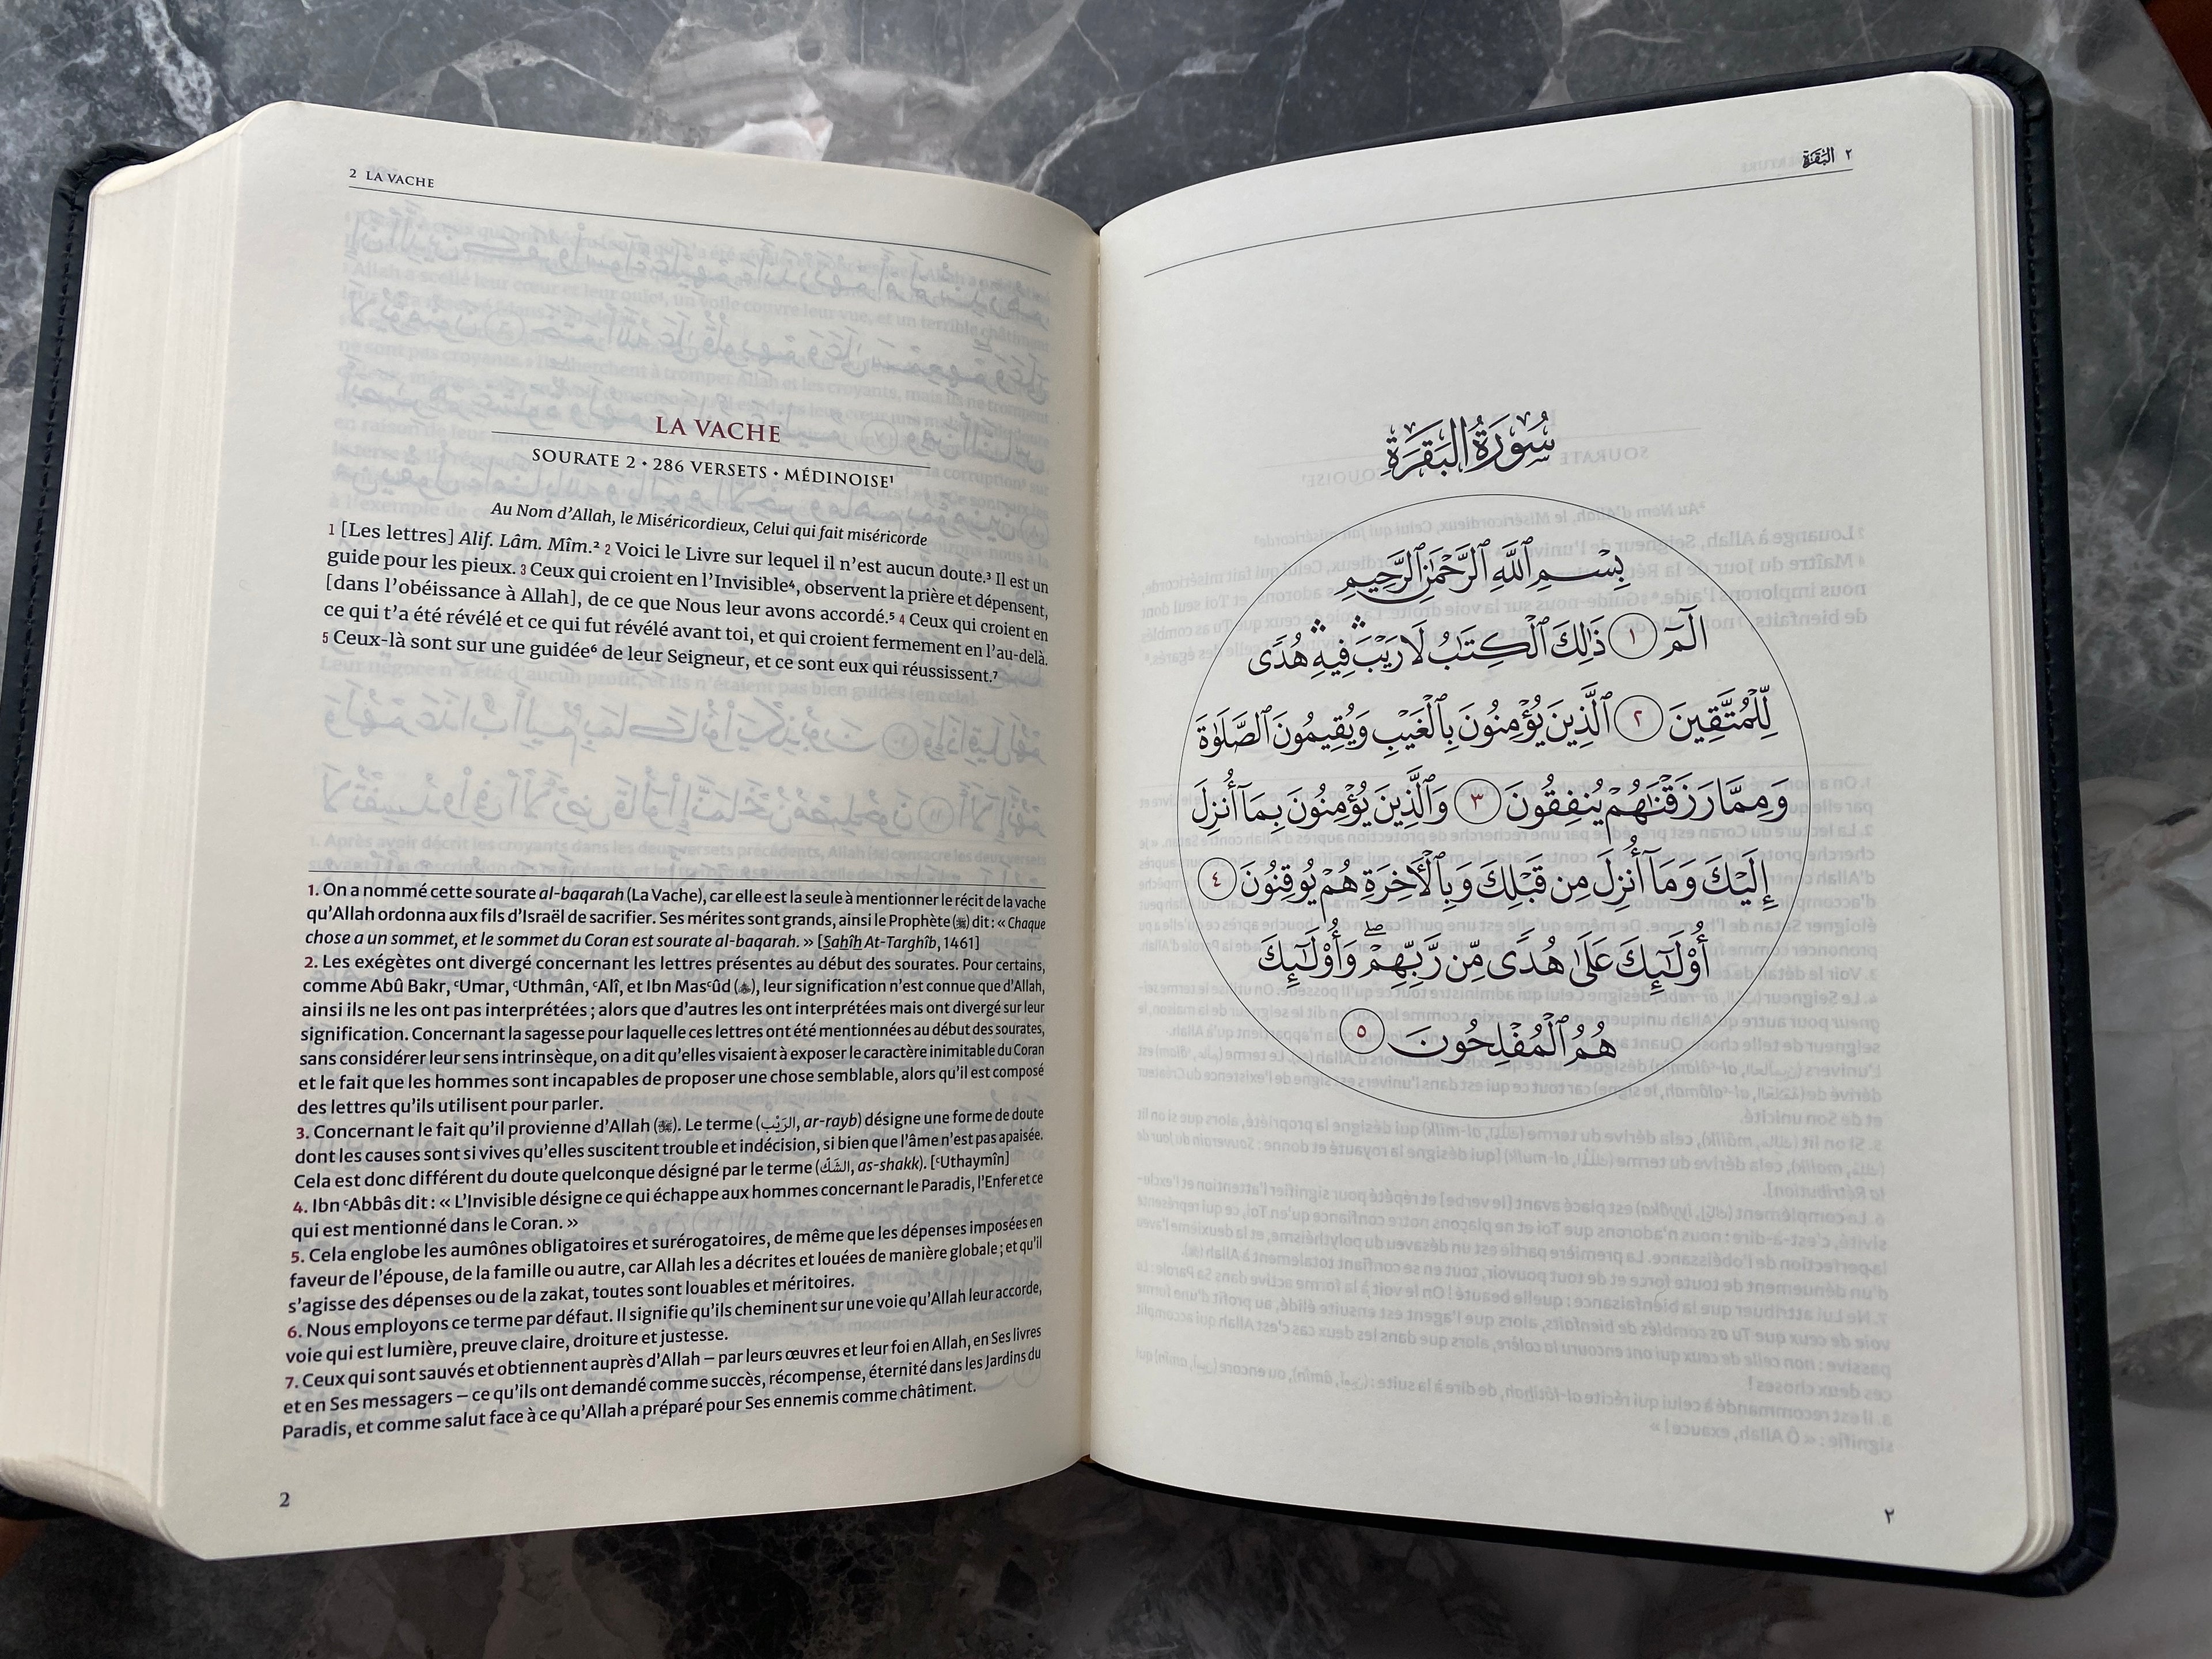 2 LA VACHE
LA VACHE
SOURATE 2 • 286 VERSETS • MÉDINOISE¹
Au Nom d’Allah, le Miséricordieux, Celui qui fait miséricorde
1 [Les lettres] Alif. Lâm. Mîm.² 2 Voici le Livre sur lequel il n’est aucun doute.³ Il est un
guide pour les pieux. 3 Ceux qui croient en l’Invisible⁴, observent la prière et dépensent,
[dans l’obéissance à Allah], de ce que Nous leur avons accordé.⁵ 4 Ceux qui croient en
ce qui t’a été révélé et ce qui fut révélé avant toi, et qui croient fermement en l’au-delà.
5 Ceux-là sont sur une guidée⁶ de leur Seigneur, et ce sont eux qui réussissent.⁷
1. On a nommé cette sourate al-baqarah (La Vache), car elle est la seule à mentionner le récit de la vache
qu’Allah ordonna aux fils d’Israël de sacrifier. Ses mérites sont grands, ainsi le Prophète (ﷺ) dit : « Chaque
chose a un sommet, et le sommet du Coran est sourate al-baqarah. » [Sahîh At-Targhîb, 1461]
2. Les exégètes ont divergé concernant les lettres présentes au début des sourates. Pour certains,
comme Abû Bakr, ʿUmar, ʿUthmân, ʿAlî, et Ibn Masʿûd (), leur signification n’est connue que d’Allah,
ainsi ils ne les ont pas interprétées ; alors que d’autres les ont interprétées mais ont divergé sur leur
signification. Concernant la sagesse pour laquelle ces lettres ont été mentionnées au début des sourates,
sans considérer leur sens intrinsèque, on a dit qu’elles visaient à exposer le caractère inimitable du Coran
et le fait que les hommes sont incapables de proposer une chose semblable, alors qu’il est composé
des lettres qu’ils utilisent pour parler.
3. Concernant le fait qu’il provienne d’Allah (). Le terme (الرَّيْب, ar-rayb) désigne une forme de doute
dont les causes sont si vives qu’elles suscitent trouble et indécision, si bien que l’âme n’est pas apaisée.
Cela est donc différent du doute quelconque désigné par le terme (الشَّكّ, as-shakk). [ʿUthaymîn]
4. Ibn ʿAbbâs dit : « L’Invisible désigne ce qui échappe aux hommes concernant le Paradis, l’Enfer et ce
qui est mentionné dans le Coran. »
5. Cela englobe les aumônes obligatoires et surérogatoires, de même que les dépenses imposées en
faveur de l’épouse, de la famille ou autre, car Allah les a décrites et louées de manière globale ; et qu’il
s’agisse des dépenses ou de la zakat, toutes sont louables et méritoires.
6. Nous employons ce terme par défaut. Il signifie qu’ils cheminent sur une voie qu’Allah leur accorde,
voie qui est lumière, preuve claire, droiture et justesse.
7. Ceux qui sont sauvés et obtiennent auprès d’Allah – par leurs œuvres et leur foi en Allah, en Ses livres
et en Ses messagers – ce qu’ils ont demandé comme succès, récompense, éternité dans les Jardins du
Paradis, et comme salut face à ce qu’Allah a préparé pour Ses ennemis comme châtiment.
2
٢ البَقَرَة
سُورَةُ البَقَرَةِ
بِسْمِ ٱللَّهِ ٱلرَّحْمَٰنِ ٱلرَّحِيمِ
الٓمٓ ١ ذَٰلِكَ ٱلْكِتَٰبُ لَا رَيْبَ ۛ فِيهِ ۛ هُدًى
لِّلْمُتَّقِينَ ٢ ٱلَّذِينَ يُؤْمِنُونَ بِٱلْغَيْبِ وَيُقِيمُونَ ٱلصَّلَوٰةَ
وَمِمَّا رَزَقْنَٰهُمْ يُنفِقُونَ ٣ وَٱلَّذِينَ يُؤْمِنُونَ بِمَآ أُنزِلَ
إِلَيْكَ وَمَآ أُنزِلَ مِن قَبْلِكَ وَبِٱلْءَاخِرَةِ هُمْ يُوقِنُونَ ٤
أُو۟لَٰٓئِكَ عَلَىٰ هُدًى مِّن رَّبِّهِمْ ۖ وَأُو۟لَٰٓئِكَ
هُمُ ٱلْمُفْلِحُونَ ٥
٢